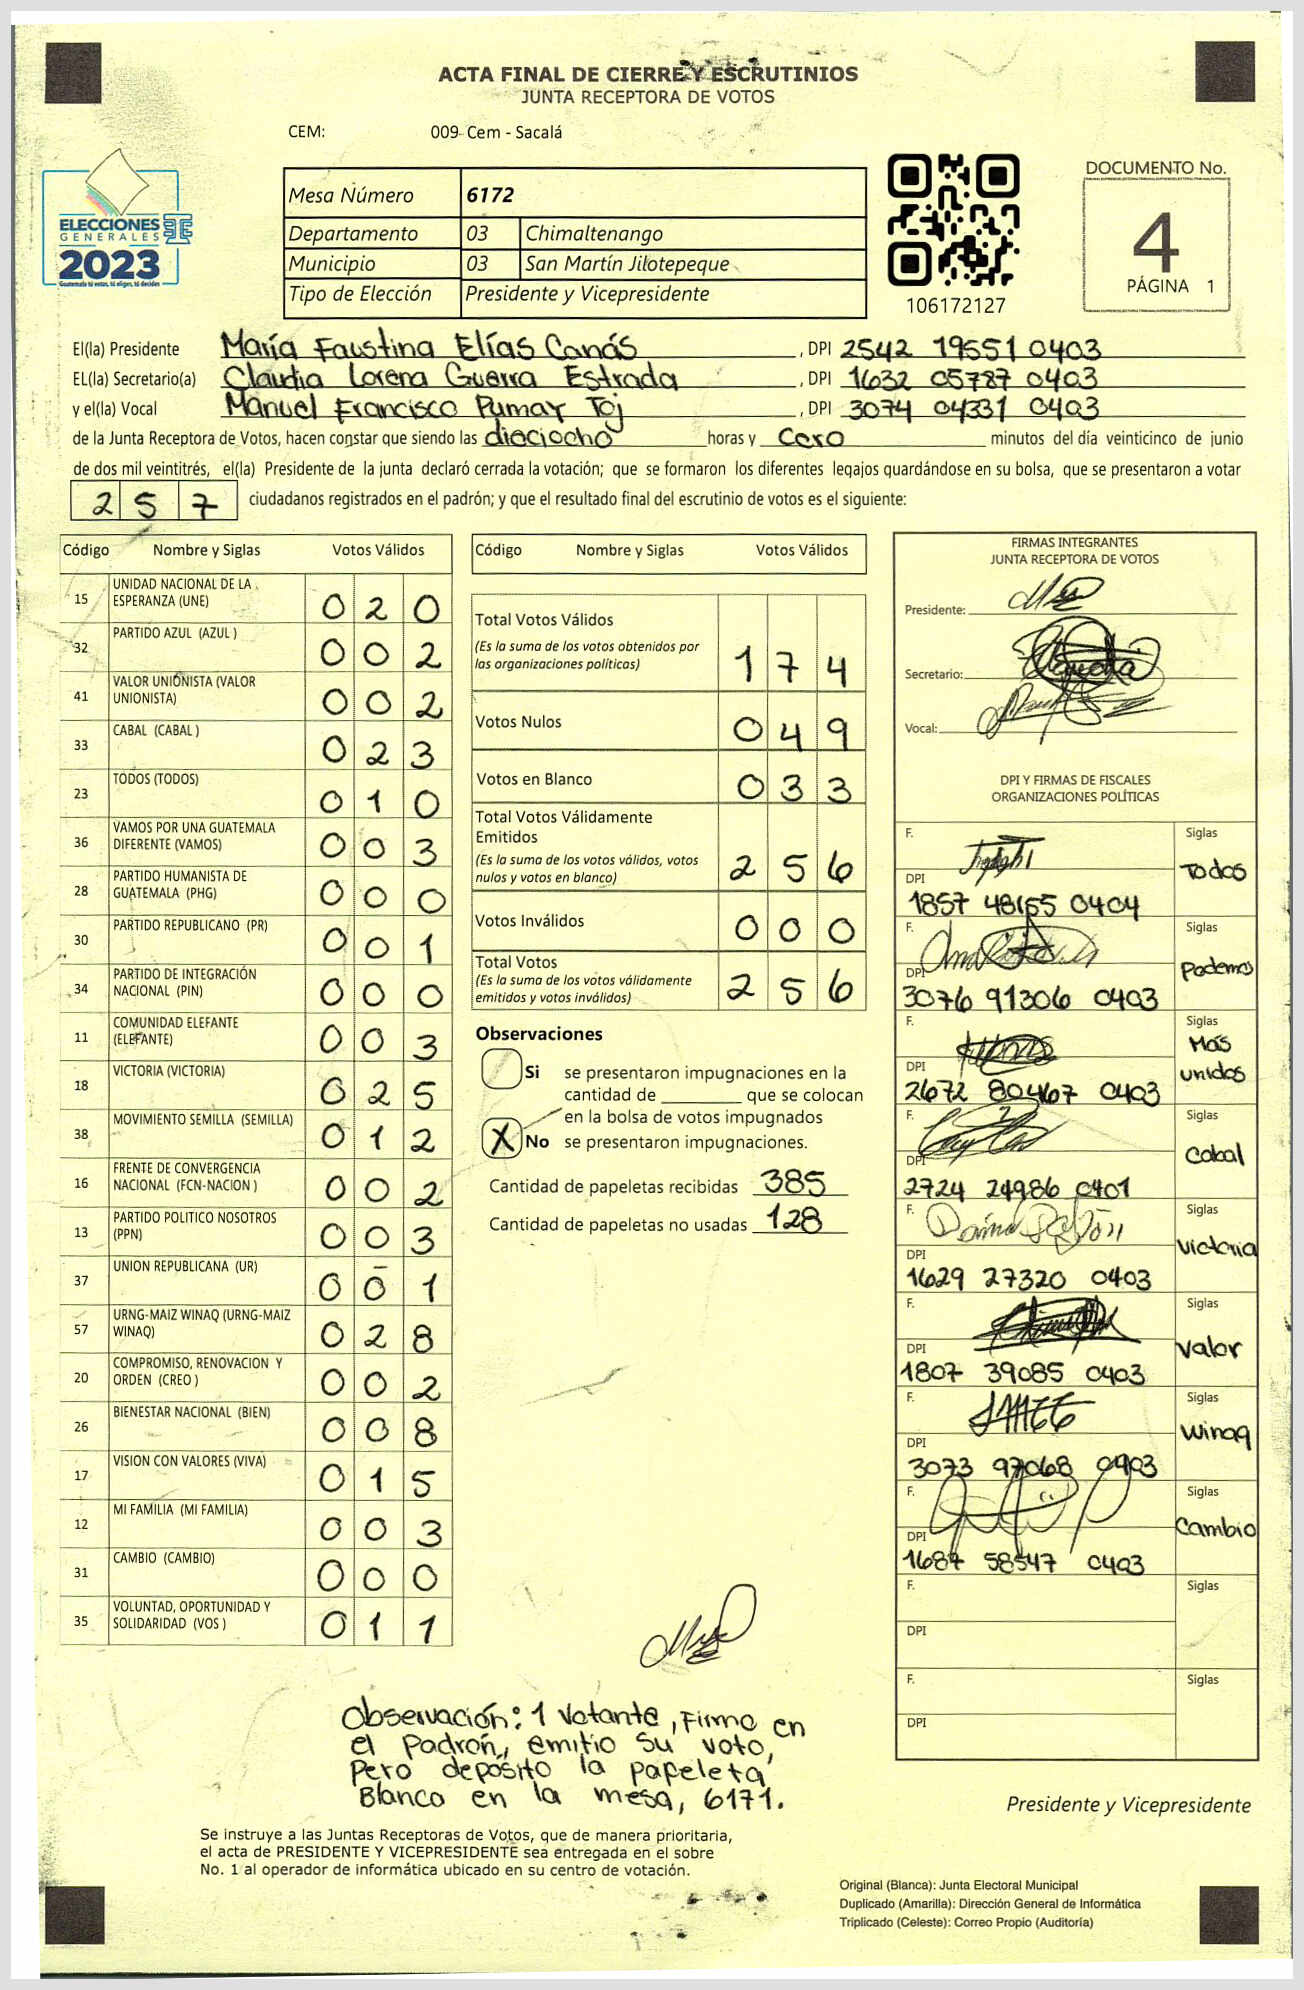 ACTA FINAL DE CIERRE Y ESCRUTINIOS
JUNTA RECEPTORA DE VOTOS
CEM: 009- Cem - Sacalá
ELECCIONES
GENERALES
2023
Guatemala tú votas, tú eliges, tú decides
Mesa Número 6172
Departamento 03 Chimaltenango
Municipio 03 San Martín Jilotepeque
Tipo de Elección Presidente y Vicepresidente
106172127
DOCUMENTO No.
4
PÁGINA 1
El(la) Presidente María Faustina Elías Canás , DPI 2542 19551 0403
EL(la) Secretario(a) Claudia Lorena Guerra Estrada , DPI 1632 05787 0403
y el(la) Vocal Manuel Francisco Pumay Toj , DPI 3074 04331 0403
de la Junta Receptora de Votos, hacen constar que siendo las dieciocho horas y cero minutos del día veinticinco de junio
de dos mil veintitrés, el(la) Presidente de la junta declaró cerrada la votación; que se formaron los diferentes legajos guardándose en su bolsa, que se presentaron a votar
257 ciudadanos registrados en el padrón; y que el resultado final del escrutinio de votos es el siguiente:
Código Nombre y Siglas Votos Válidos
15 UNIDAD NACIONAL DE LA
ESPERANZA (UNE) 020
32 PARTIDO AZUL (AZUL ) 002
41 VALOR UNIONISTA (VALOR
UNIONISTA) 002
33 CABAL (CABAL ) 023
23 TODOS (TODOS) 010
36 VAMOS POR UNA GUATEMALA
DIFERENTE (VAMOS) 003
28 PARTIDO HUMANISTA DE
GUATEMALA (PHG) 000
30 PARTIDO REPUBLICANO (PR) 001
34 PARTIDO DE INTEGRACIÓN
NACIONAL (PIN) 000
11 COMUNIDAD ELEFANTE
(ELEFANTE) 003
18 VICTORIA (VICTORIA) 025
38 MOVIMIENTO SEMILLA (SEMILLA) 012
16 FRENTE DE CONVERGENCIA
NACIONAL (FCN-NACION ) 002
13 PARTIDO POLITICO NOSOTROS
(PPN) 003
37 UNION REPUBLICANA (UR) 001
57 URNG-MAIZ WINAQ (URNG-MAIZ
WINAQ) 028
20 COMPROMISO, RENOVACION Y
ORDEN (CREO ) 002
26 BIENESTAR NACIONAL (BIEN) 008
17 VISION CON VALORES (VIVA) 015
12 MI FAMILIA (MI FAMILIA) 003
31 CAMBIO (CAMBIO) 000
35 VOLUNTAD, OPORTUNIDAD Y
SOLIDARIDAD (VOS ) 011
Código Nombre y Siglas Votos Válidos
Total Votos Válidos
(Es la suma de los votos obtenidos por
las organizaciones políticas) 174
Votos Nulos 049
Votos en Blanco 033
Total Votos Válidamente
Emitidos
(Es la suma de los votos válidos, votos
nulos y votos en blanco) 256
Votos Inválidos 000
Total Votos
(Es la suma de los votos válidamente
emitidos y votos inválidos) 256
Observaciones
Si se presentaron impugnaciones en la
cantidad de ________ que se colocan
en la bolsa de votos impugnados
X No se presentaron impugnaciones.
Cantidad de papeletas recibidas 385
Cantidad de papeletas no usadas 128
FIRMAS INTEGRANTES
JUNTA RECEPTORA DE VOTOS
Presidente:
Secretario:
Vocal:
DPI Y FIRMAS DE FISCALES
ORGANIZACIONES POLÍTICAS
F. Siglas
Todos
DPI
1857 48155 0404
F. Siglas
Podemos
DPI
3076 91306 0403
F. Siglas
Más
unidos
DPI
2672 80467 0403
F. Siglas
Cabal
DPI
2724 24986 0401
F. Siglas
Victoria
DPI
1629 27320 0403
F. Siglas
Valor
DPI
1807 39085 0403
F. Siglas
Winaq
DPI
3073 97068 0403
F. Siglas
Cambio
DPI
1687 58547 0403
F. Siglas
DPI
F. Siglas
DPI
Observación: 1 Votante, Firmo en
el Padrón, emitio su voto,
Pero deposito la papeleta
Blanca en la mesa, 6171.
Presidente y Vicepresidente
Se instruye a las Juntas Receptoras de Votos, que de manera prioritaria,
el acta de PRESIDENTE Y VICEPRESIDENTE sea entregada en el sobre
No. 1 al operador de informática ubicado en su centro de votación.
Original (Blanca): Junta Electoral Municipal
Duplicado (Amarilla): Dirección General de Informática
Triplicado (Celeste): Correo Propio (Auditoría)